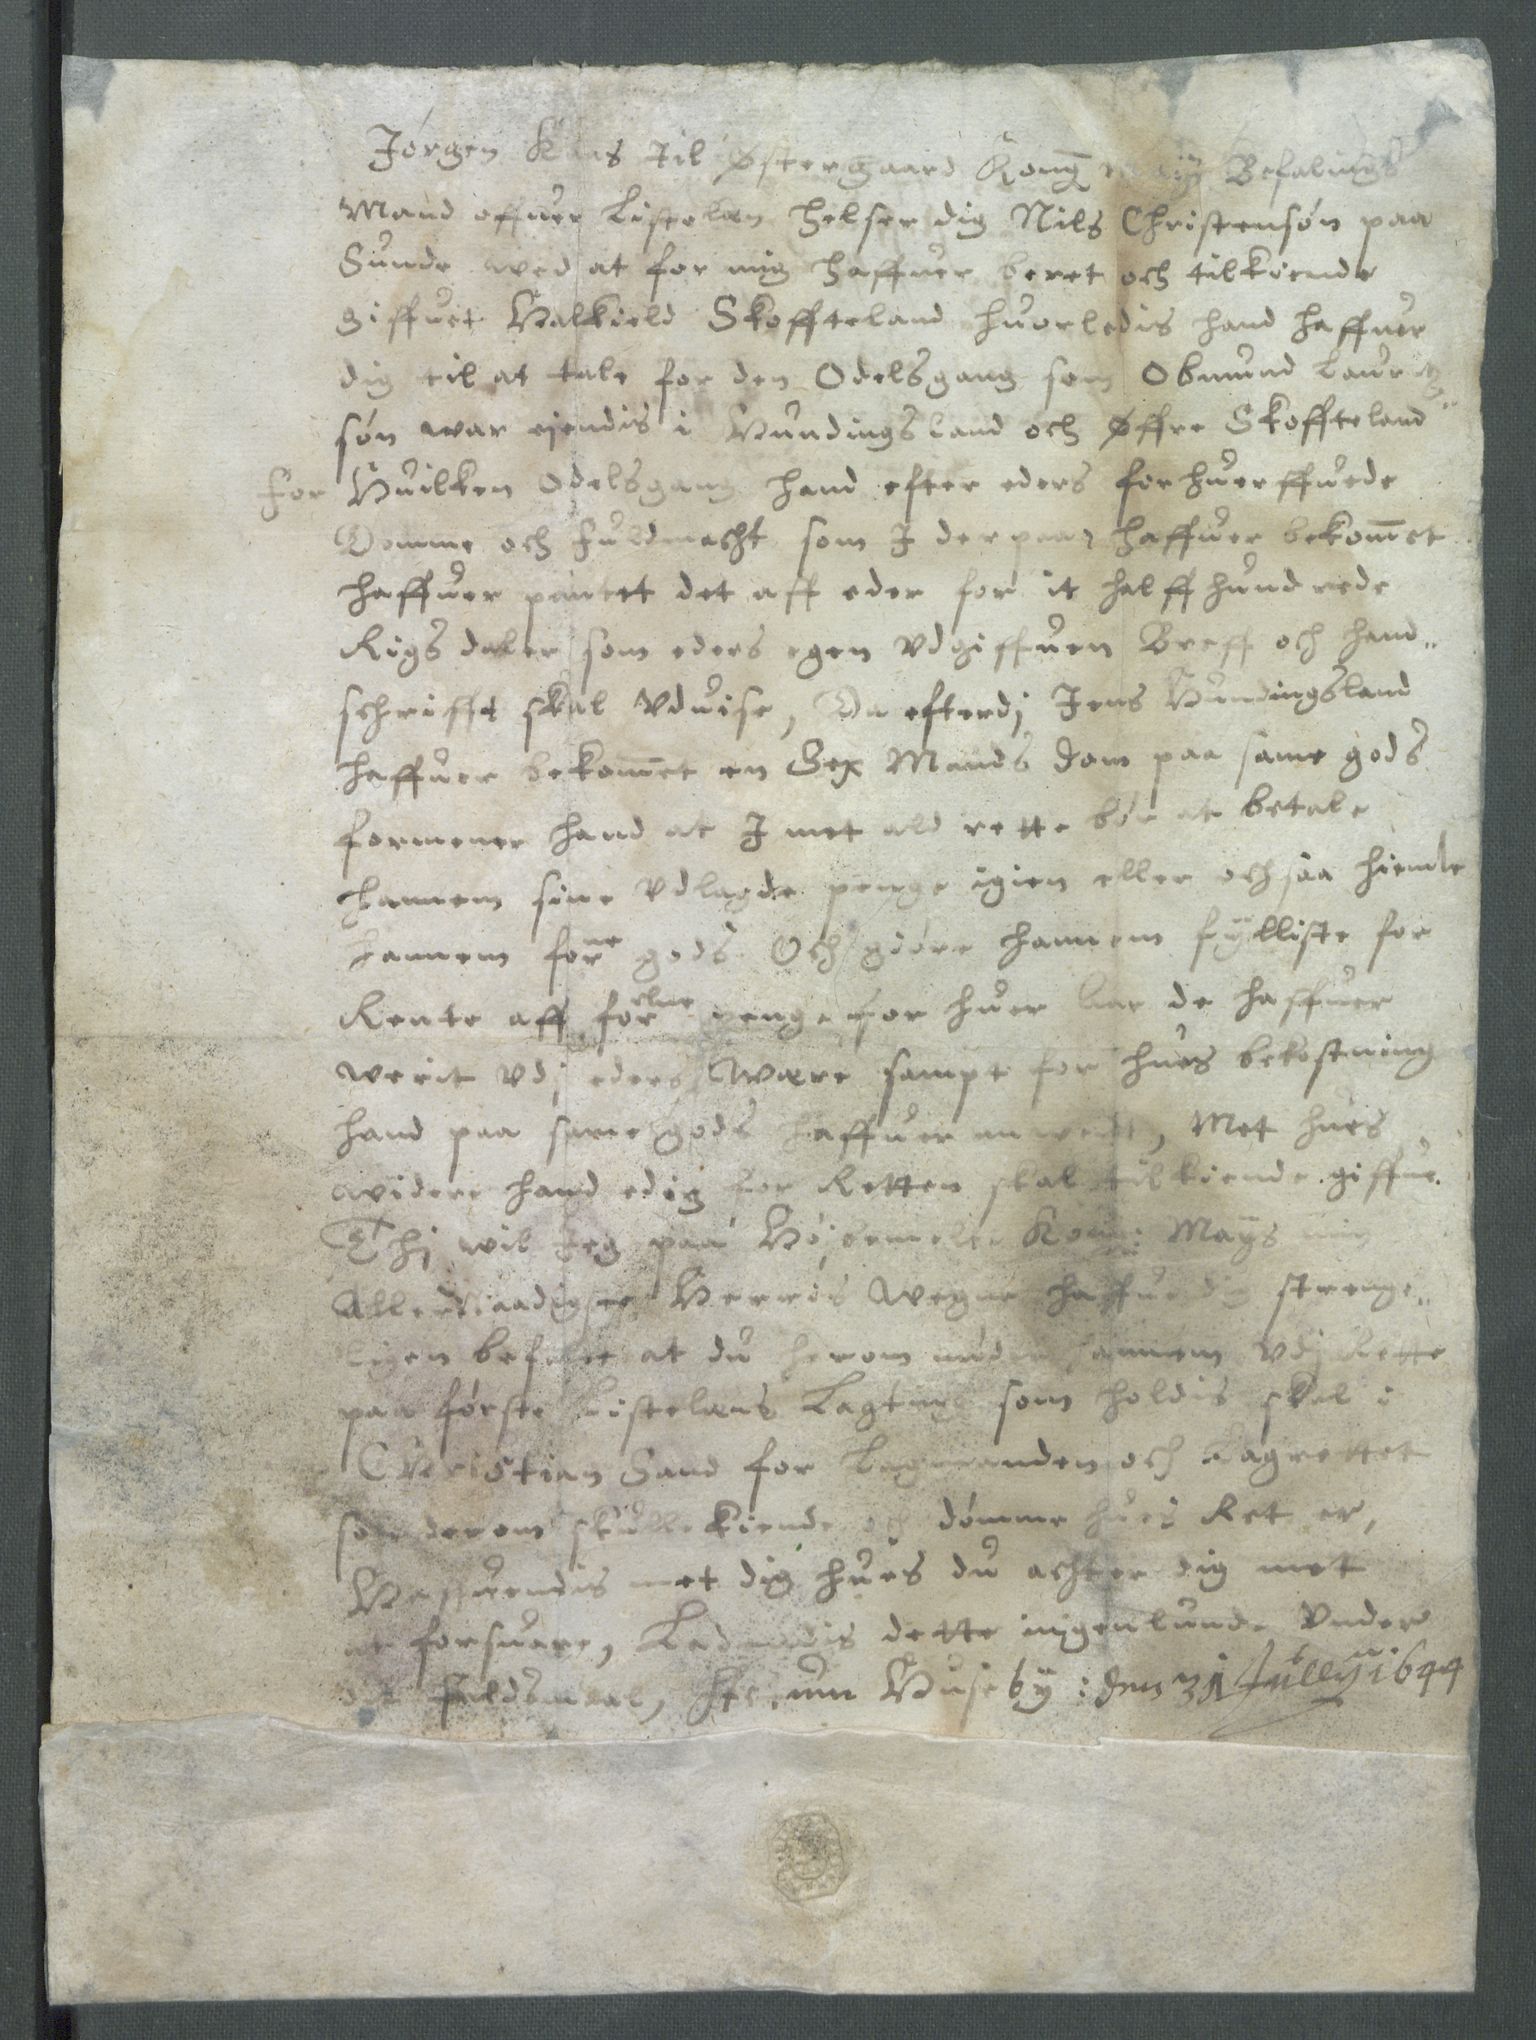 Jørgen Kaas til Østergaard Kong May Befalings
Mand offuer Listelæn helser dig Nils Christensøn paa
Sunde wed at for mig haffuer beret och tilkiende
giffuet Halkield Skoffteland huorledis hand haffuer
dig til at tale for den Odelsgang som Obmund Lauritz„
søn war eiendis i Hundingsland och Øffre Skoffteland
For Huilken Odelsgang hand efter eders forhuerffuede
Domme och Fuldmacht som I derpaa haffuer bekom̄et
haffuer pantet det aff eder for it halff hundrede
Rigsdaler som eders egen vdgiffuen Breff och hand„
schrifft skal vduise, Da efterdj Jens Hundingsland
haffuer bekom̄et en Sex Mands dom paa same gods
formener hand at I met ald rette bør at betale
hannem sine vdlagde penge igien eller och saa hiemle
hannem forne gods Och giøre hannem fylliste for
Rente aff forne penge for huer Aar de haffuer
werit vdj eders Wære sampt for hues bekostning
hand paa same gods haffuer anwendt, Met hues
widere hand edig for Retten skal tilkiende giffue.
Thj wil Jeg paa Høybemelte Kong: Mays min
Allernaadigste Herris wegne haffue dig strenge„
ligen befalet at du herom møder hannem vdj Rette
paa første Listelæns Lagting som holdis skal i
Christian Sand for Lagmanden och Lagrettet
som derom skulle kiende och dømme hues Ret er,
Hafuendis met dig hues du achter dig met
at forsuare, Ladendis dette ingenlunde vnder
dit Faldsmaal, Actum Huseby: den 31 Jullij 1644